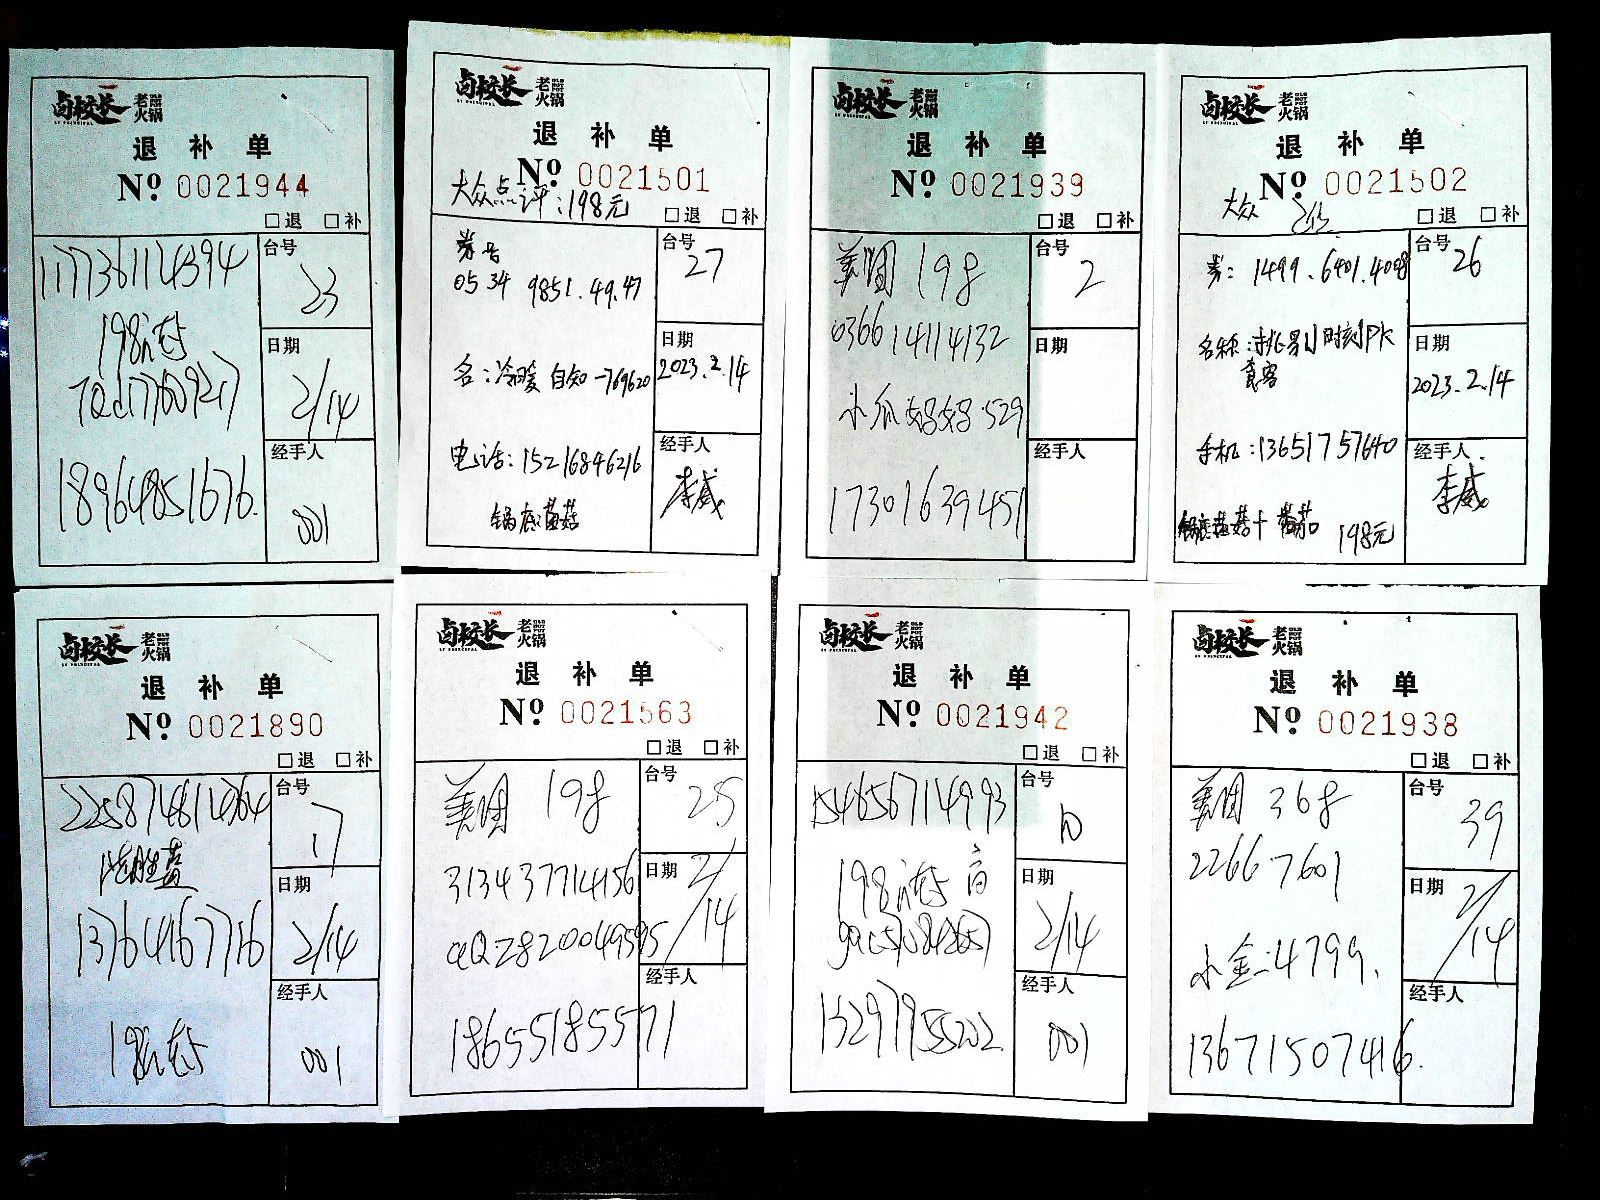 卤校长 老火锅
LU PRINCIPAL
退 补 单
Nº 0021944
□退 □补
117736114394
台号
23
198
日期
2/14
18964851676.
经手人
001
卤校长 老火锅
LU PRINCIPAL
退 补 单
Nº 0021501
大众点评:198元
□退 □补
券号
0534 9851.49.47
台号
27
名:冷暖自知-769620
日期
2023.2.14
电话:15216846216
锅底:菌菇
经手人
李威
卤校长 老火锅
LU PRINCIPAL
退 补 单
Nº 0021939
□退 □补
美团 198
台号
2
036614114132
日期
小瓜好好.529
17301639451
经手人
卤校长 老火锅
LU PRINCIPAL
退 补 单
Nº 0021502
大众
□退 □补
券: 1499.6401.4098
台号
26
名称: 时刻PK
套客
日期
2023.2.14
手机:13651757640
经手人
李威
锅底菌菇+番茄 198元
卤校长 老火锅
LU PRINCIPAL
退 补 单
Nº 0021890
□退 □补
225874614364
台号
17
日期
2/14
13764167716
经手人
001
198
卤校长 老火锅
LU PRINCIPAL
退 补 单
Nº 0021563
□退 □补
美团 198
台号
25
313437714156
日期
2/14
18655185571
经手人
卤校长 老火锅
LU PRINCIPAL
退 补 单
Nº 0021942
□退 □补
154656714993
台号
10
198
日期
2/14
13297955202
经手人
001
卤校长 老火锅
LU PRINCIPAL
退 补 单
Nº 0021938
□退 □补
美团 368
台号
39
22667601
日期
2/14
小金:4799.
13671507416.
经手人